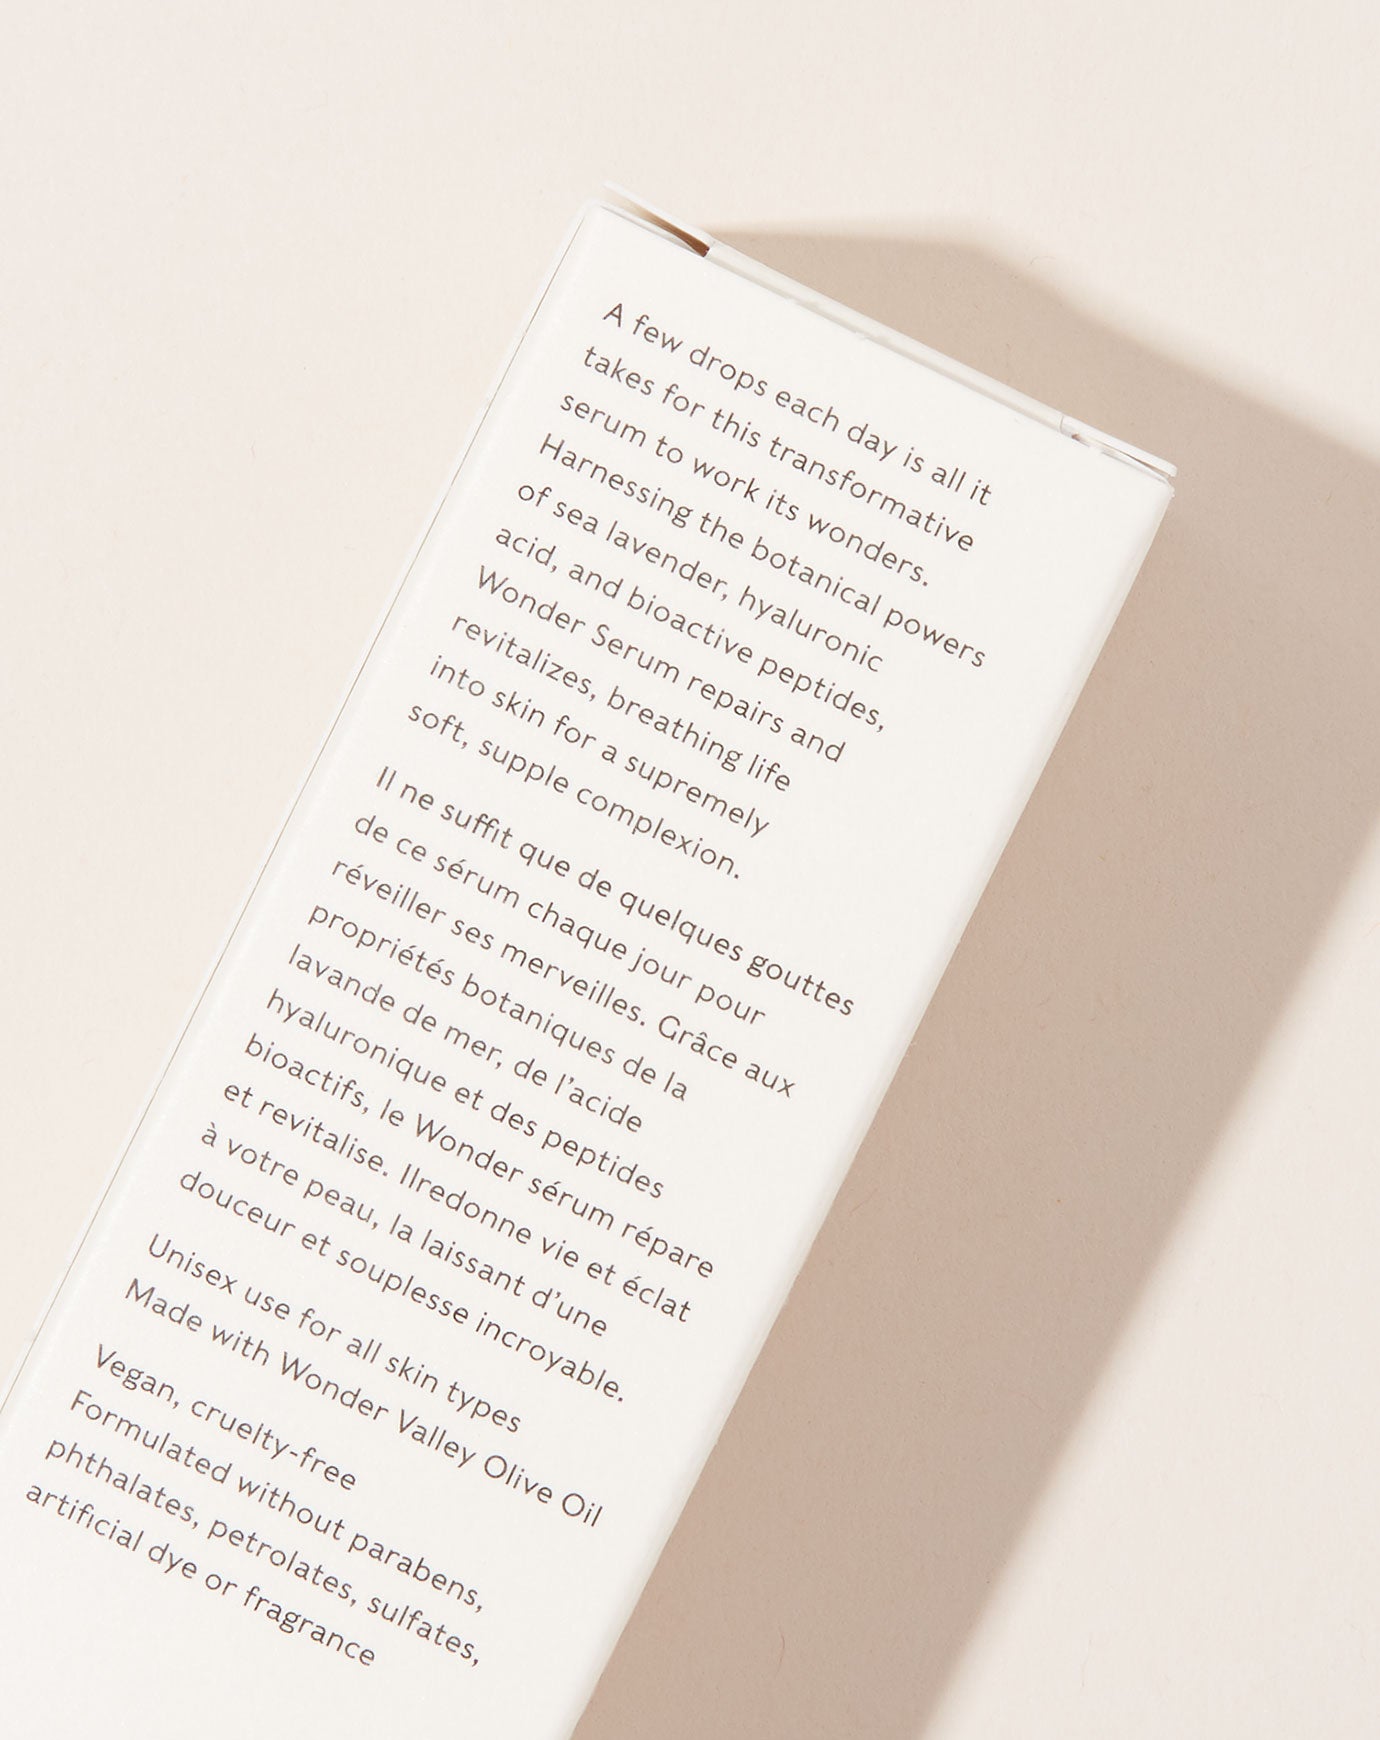 A few drops each day is all it
takes for this transformative
serum to work its wonders.
Harnessing the botanical powers
of sea lavender, hyaluronic
acid, and bioactive peptides,
Wonder Serum repairs and
revitalizes, breathing life
into skin for a supremely
soft, supple complexion.
Il ne suffit que de quelques gouttes
de ce sérum chaque jour pour
réveiller ses merveilles. Grâce aux
propriétés botaniques de la
lavande de mer, de l’acide
hyaluronique et des peptides
bioactifs, le Wonder sérum répare
et revitalise. Ilredonne vie et éclat
à votre peau, la laissant d’une
douceur et souplesse incroyable.
Unisex use for all skin types
Made with Wonder Valley Olive Oil
Vegan, cruelty-free
Formulated without parabens,
phthalates, petrolates, sulfates,
artificial dye or fragrance